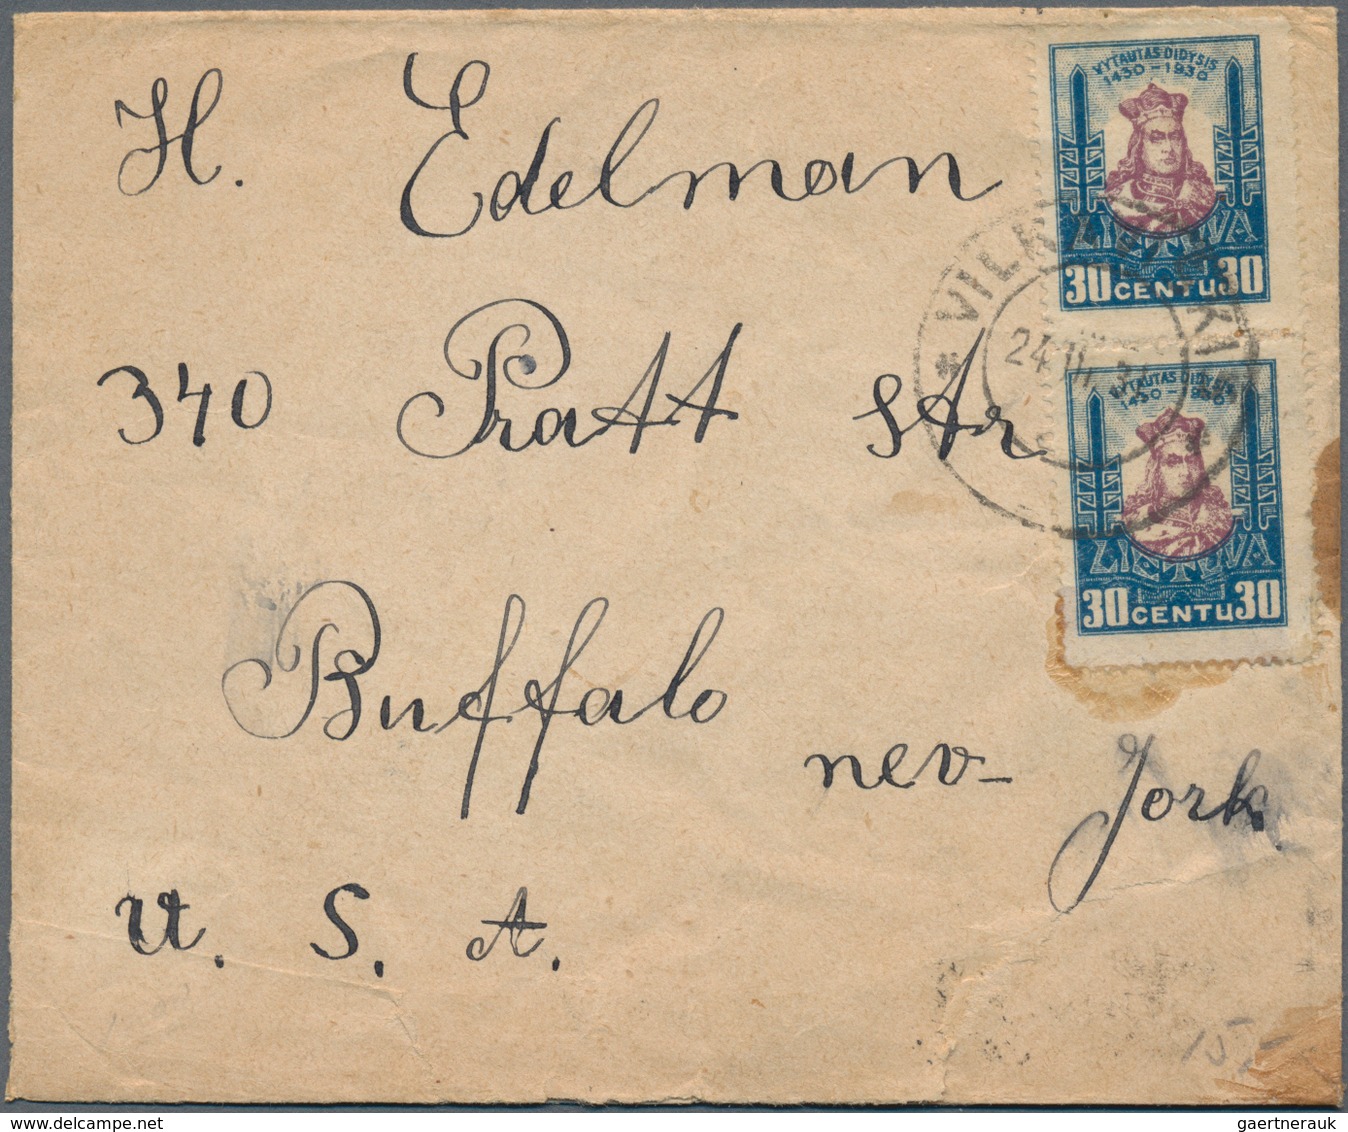 H. Edelman
340 Pratt Str
Buffalo
nev-Jork
U. S. A.
VYTAUTAS DIDYSIS
1430-1930
LIETUVA
30 CENTŲ 30
VYTAUTAS DIDYSIS
1430-1930
LIETUVA
30 CENTŲ 30
24
15,-
delcampe.net
gaertnerauk